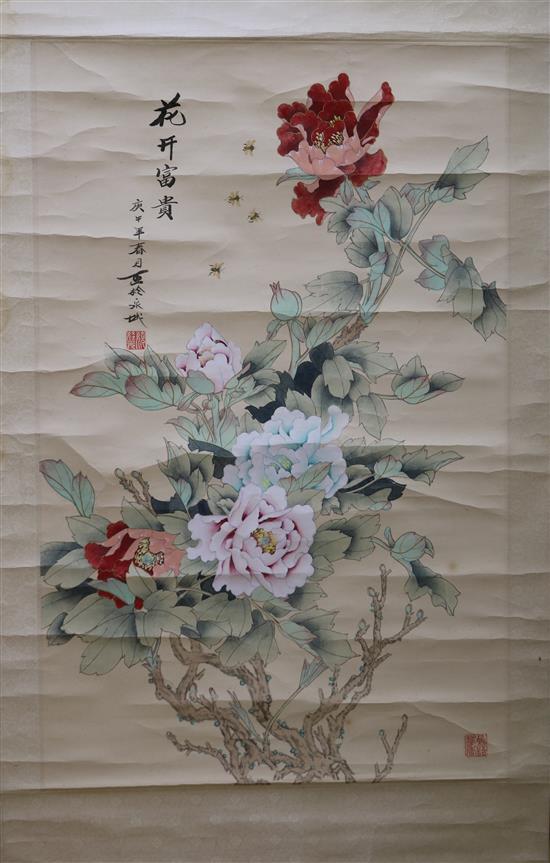 花开富貴
庚午年春月亚於泉城